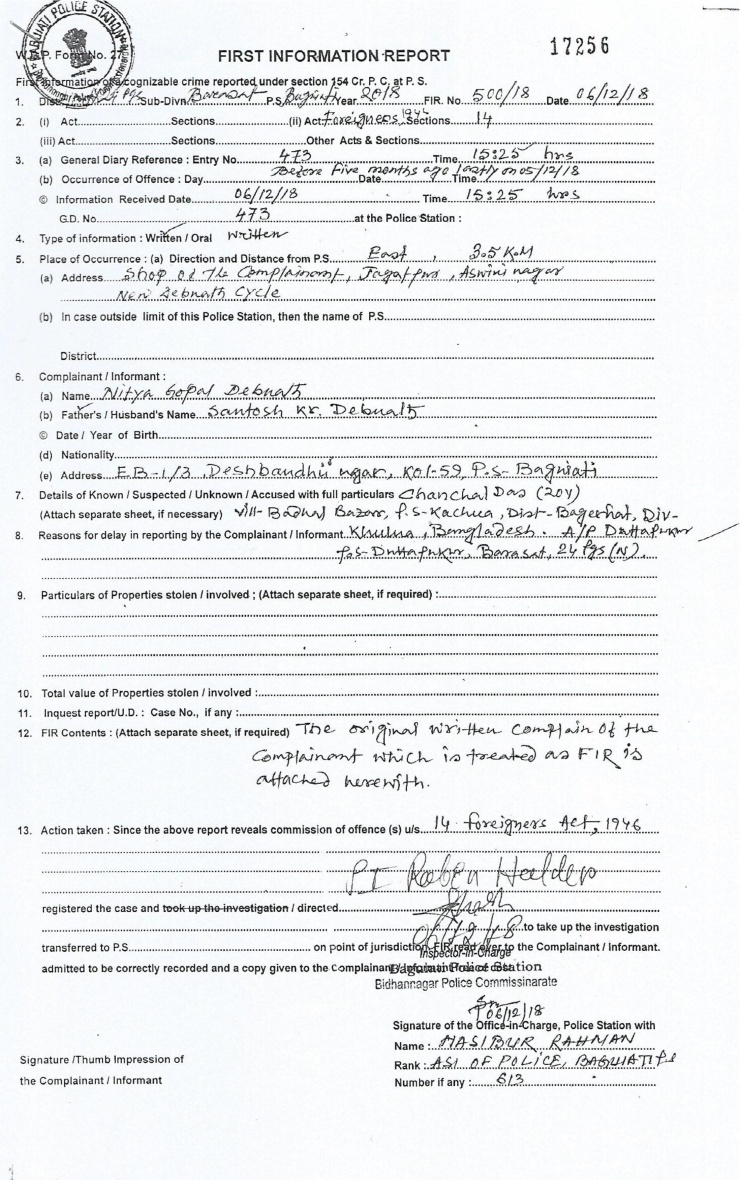 BAGUIATI POLICE STATION
17256
W.B.P. Form No. 27
FIRST INFORMATION REPORT
First Information of a cognizable crime reported under section 154 Cr. P. C. at P. S.
1. Dist. Pgs Sub-Divn. Barasat P.S. Baguiati Year 2018 FIR. No. 500/18 Date 06/12/18
2. (i) Act Sections (ii) Act Foreigners 1946 Sections 14
(iii) Act Sections Other Acts & Sections
3. (a) General Diary Reference : Entry No. 473 Time 15:25 hrs
(b) Occurrence of Offence : Day Before five months ago lastly on 05/12/18 Date Time
© Information Received Date 06/12/18 Time 15:25 hrs
G.D. No. 473 at the Police Station :
4. Type of information : Written / Oral written
5. Place of Occurrence : (a) Direction and Distance from P.S. East, 3.5 K.M
(a) Address Shop of the Complainant, Jagatpur, Aswini nagar
New Debnath Cycle
(b) In case outside limit of this Police Station, then the name of P.S.
District
6. Complainant / Informant :
(a) Name Nitya Gopal Debnath
(b) Father's / Husband's Name Santosh Kr. Debnath
© Date / Year of Birth
(d) Nationality
(e) Address E.B-1/3, Deshbandhu nagar, Kol-59, P.S- Baguiati
7. Details of Known / Suspected / Unknown / Accused with full particulars Chanchal Das (20Y)
(Attach separate sheet, if necessary) Vill- Bazar, P.S-Kachua, Dist-Bagerhat, Div-
8. Reasons for delay in reporting by the Complainant / Informant Khulna, Bangladesh. A/P Duttapukur
P.S-Duttapukur, Barasat, 24 Pgs (N)
9. Particulars of Properties stolen / involved ; (Attach separate sheet, if required) :
10. Total value of Properties stolen / involved :
11. Inquest report/U.D. : Case No., if any :
12. FIR Contents : (Attach separate sheet, if required) The original written complain of the
Complainant which is treated as FIR is
attached herewith.
13. Action taken : Since the above report reveals commission of offence (s) u/s 14 foreigners Act, 1946
PI Roben Halder
registered the case and took up the investigation / directed
06/12/18 to take up the investigation
transferred to P.S. on point of jurisdiction FIR read over to the Complainant / Informant.
Inspector-in-Charge
admitted to be correctly recorded and a copy given to the Complainant / Informant Free of cost
Baguiati Police Station
Bidhannagar Police Commissinarate
06/12/18
Signature of the Office-in-Charge, Police Station with
Name : HASIBUR RAHMAN
Signature /Thumb Impression of
Rank : ASI OF POLICE, BAGUIATI PS
the Complainant / Informant
Number if any : 613